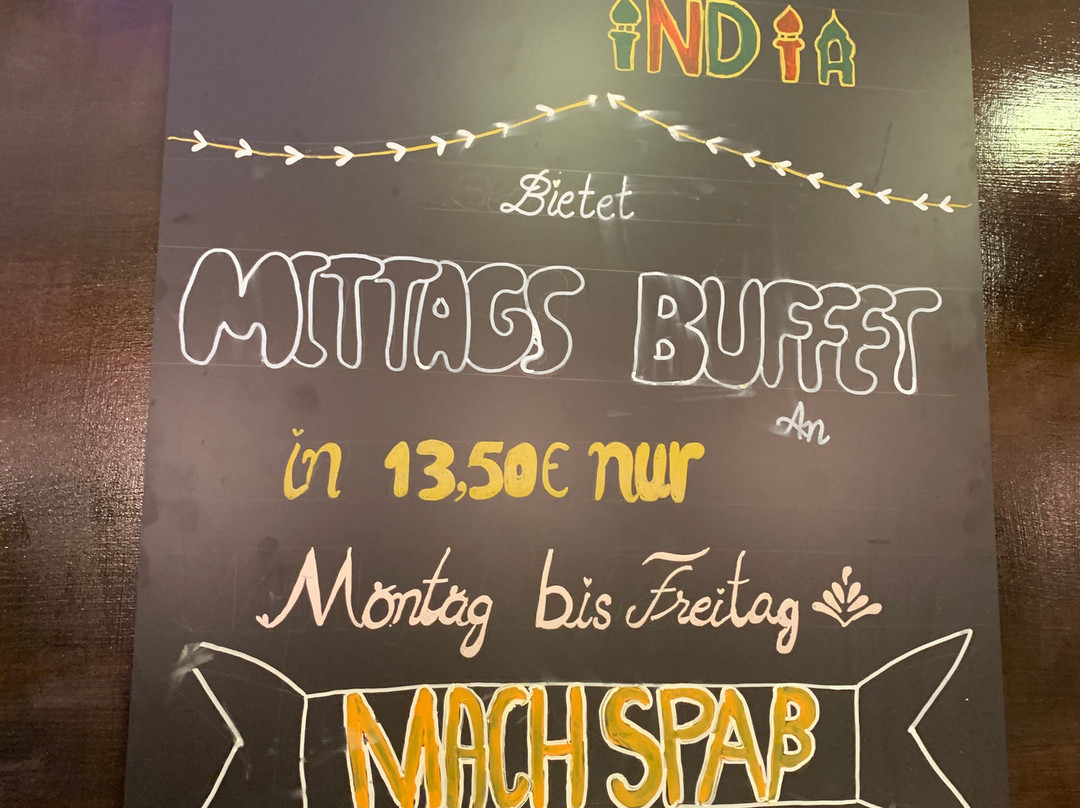 INDIA
Bietet
MITTAGS BUFFET
An
in 13,50€ nur
Montag bis Freitag
MACH SPAß